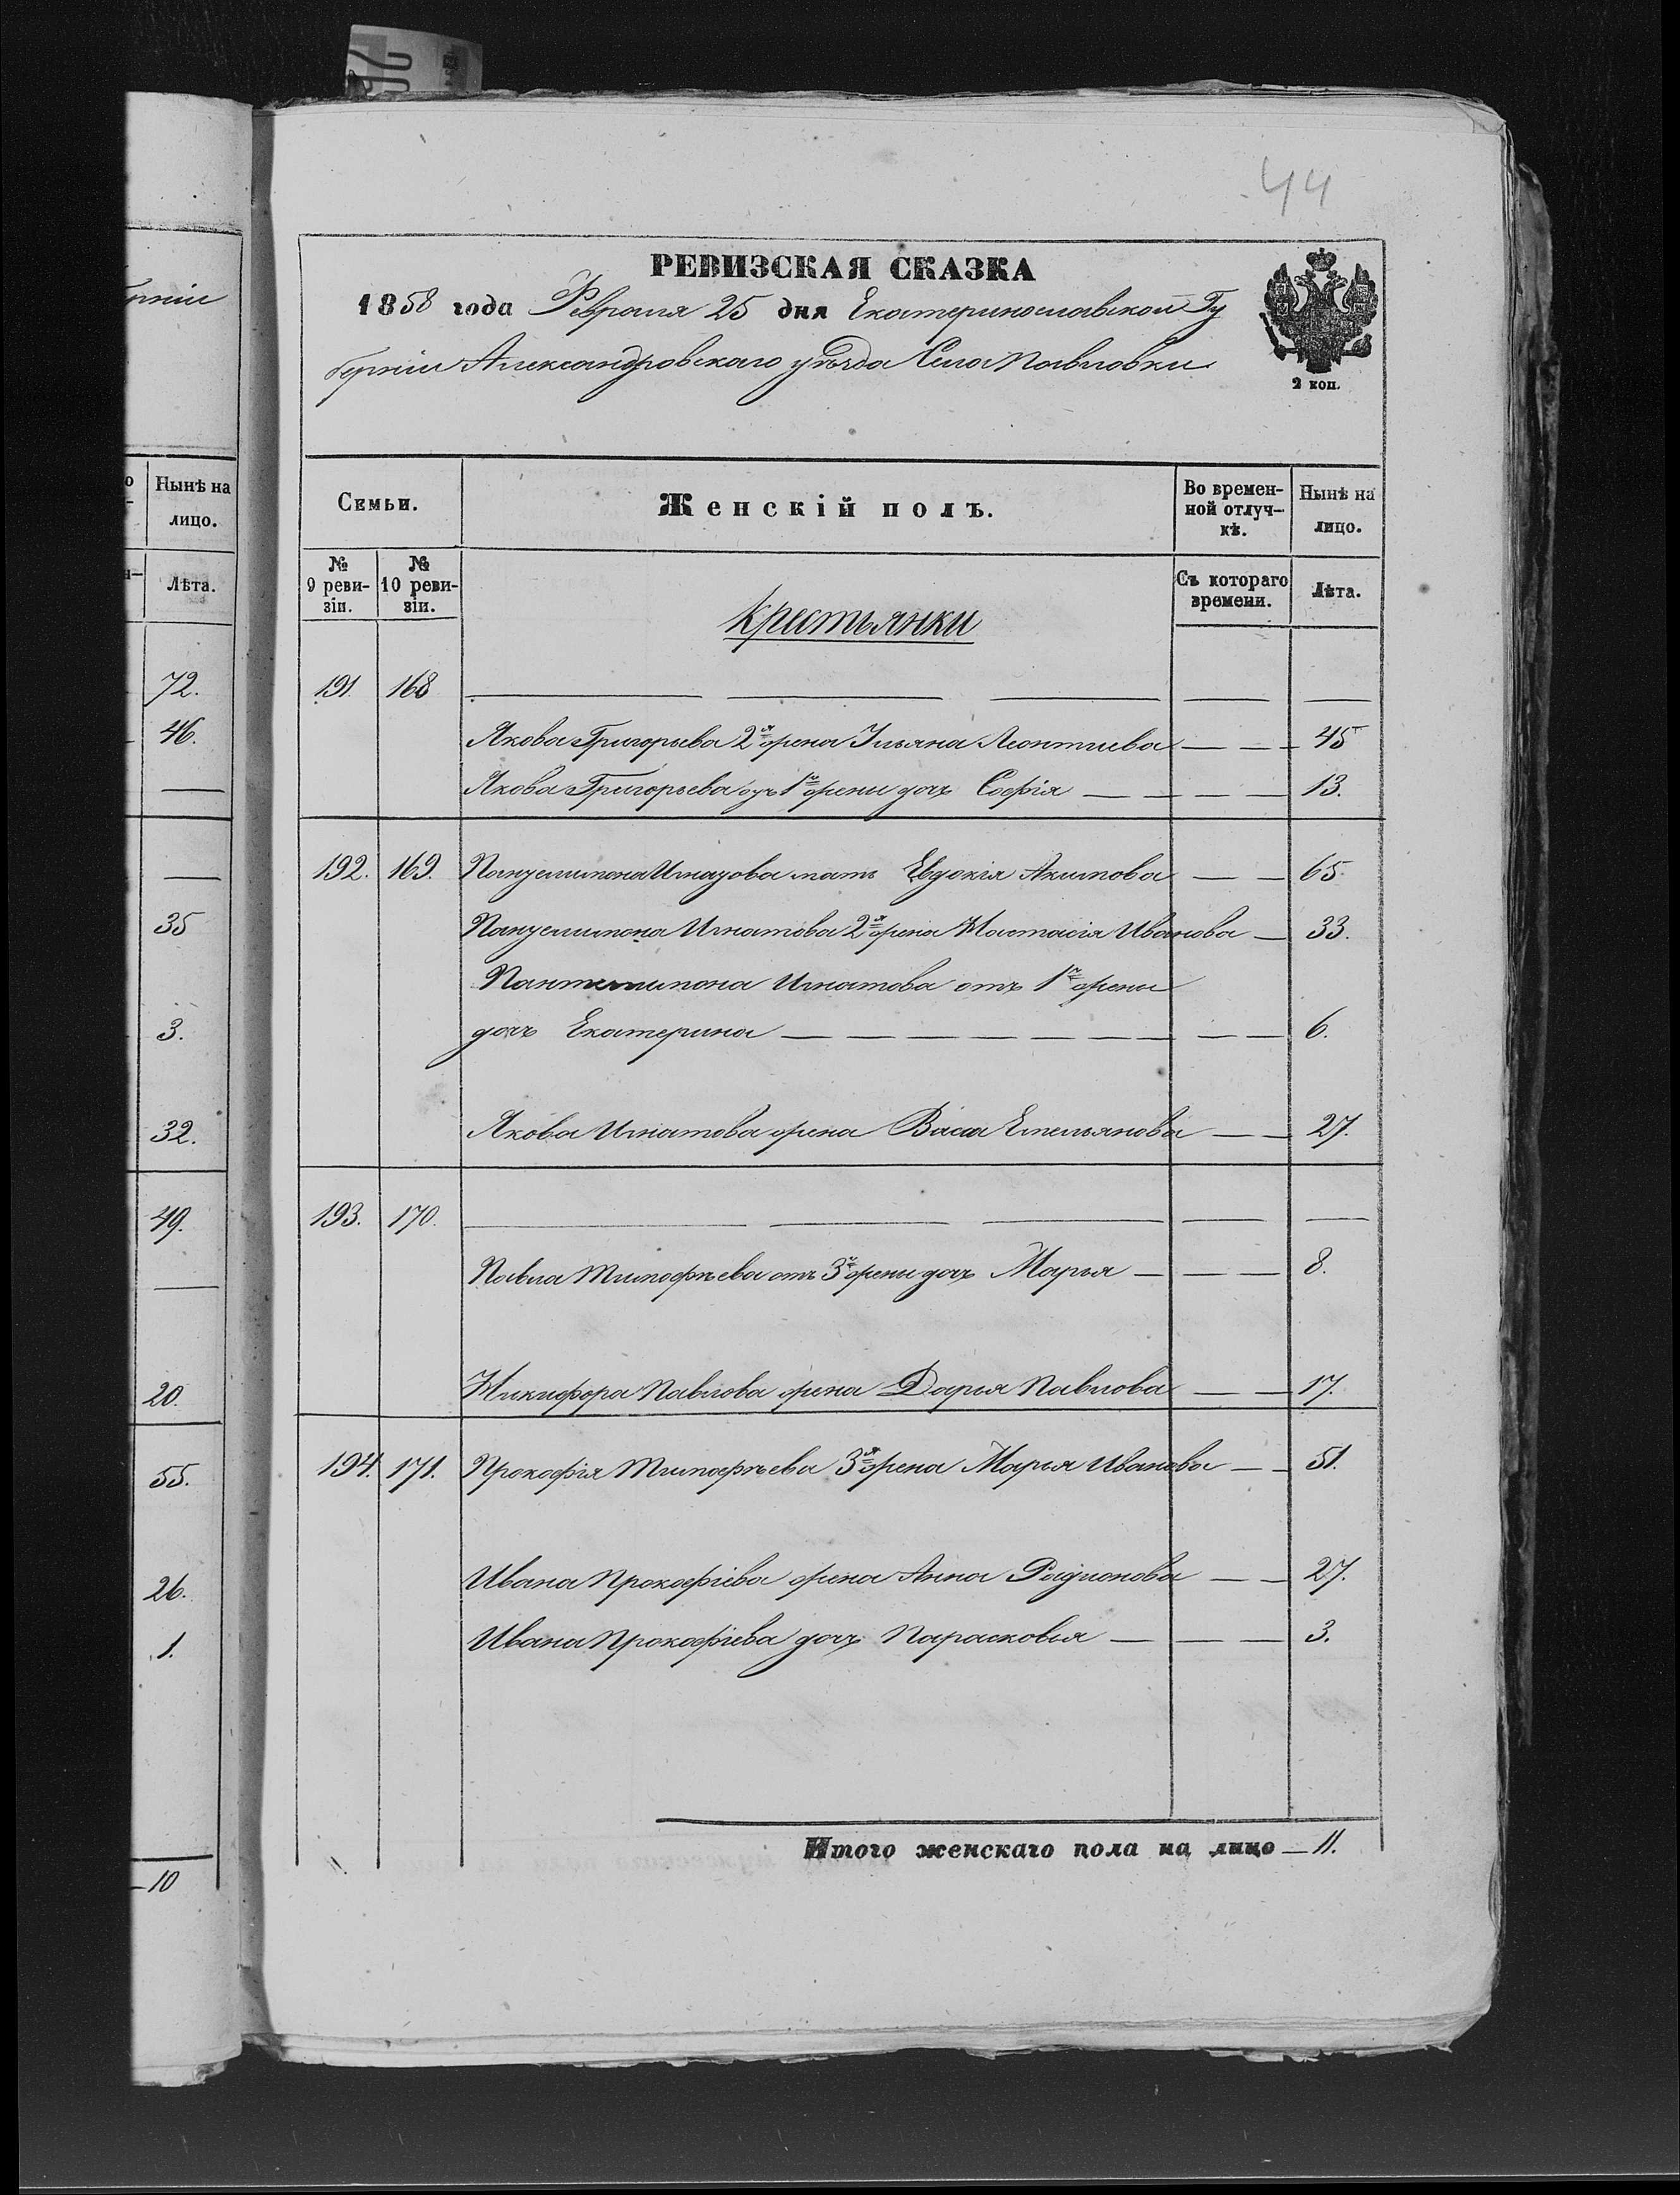 44
рніи
РЕВИЗСКАЯ СКАЗКА
1858 года Февраля 25 дня Екатеринославской Гу
берніи Александровскаго уѣзда Села Павловки
2 коп.
Нынѣ на
лицо.
Лѣта.
72.
46.
35
3.
32.
49.
20.
55.
26.
1.
10
Семьи.
Женскій полъ.
Во времен-
ной отлуч-
кѣ.
Нынѣ на
лицо.
№
9 реви-
зіи.
№
10 реви-
зіи.
Съ котораго
времени.
Лѣта.
Крестьянки
191. 168
Якова Григорьева 2я жена Ульяна Леонтиева 45
Якова Григорьева отъ 1й жены дочь Софія 13.
192. 169. Пантелимона Игнатова мать Евдокія Акимова 65.
Пантелимона Игнатова 2я жена Настасія Иванова 33.
Пантелимона Игнатова отъ 1й жены
дочь Екатерина 6.
Якова Игнатова жена Васа Емельянова 27.
193. 170.
Павла Тимофѣева отъ 3й жены дочь Марья 8.
Никифора Павлова жена Дарья Павлова 17.
194. 171. Прокофія Тимофѣева 3я жена Марья Иванова 51.
Ивана Прокофіева жена Анна Радионова 27.
Ивана Прокофіева дочь Парасковья 3.
Итого женскаго пола на лицо 11.